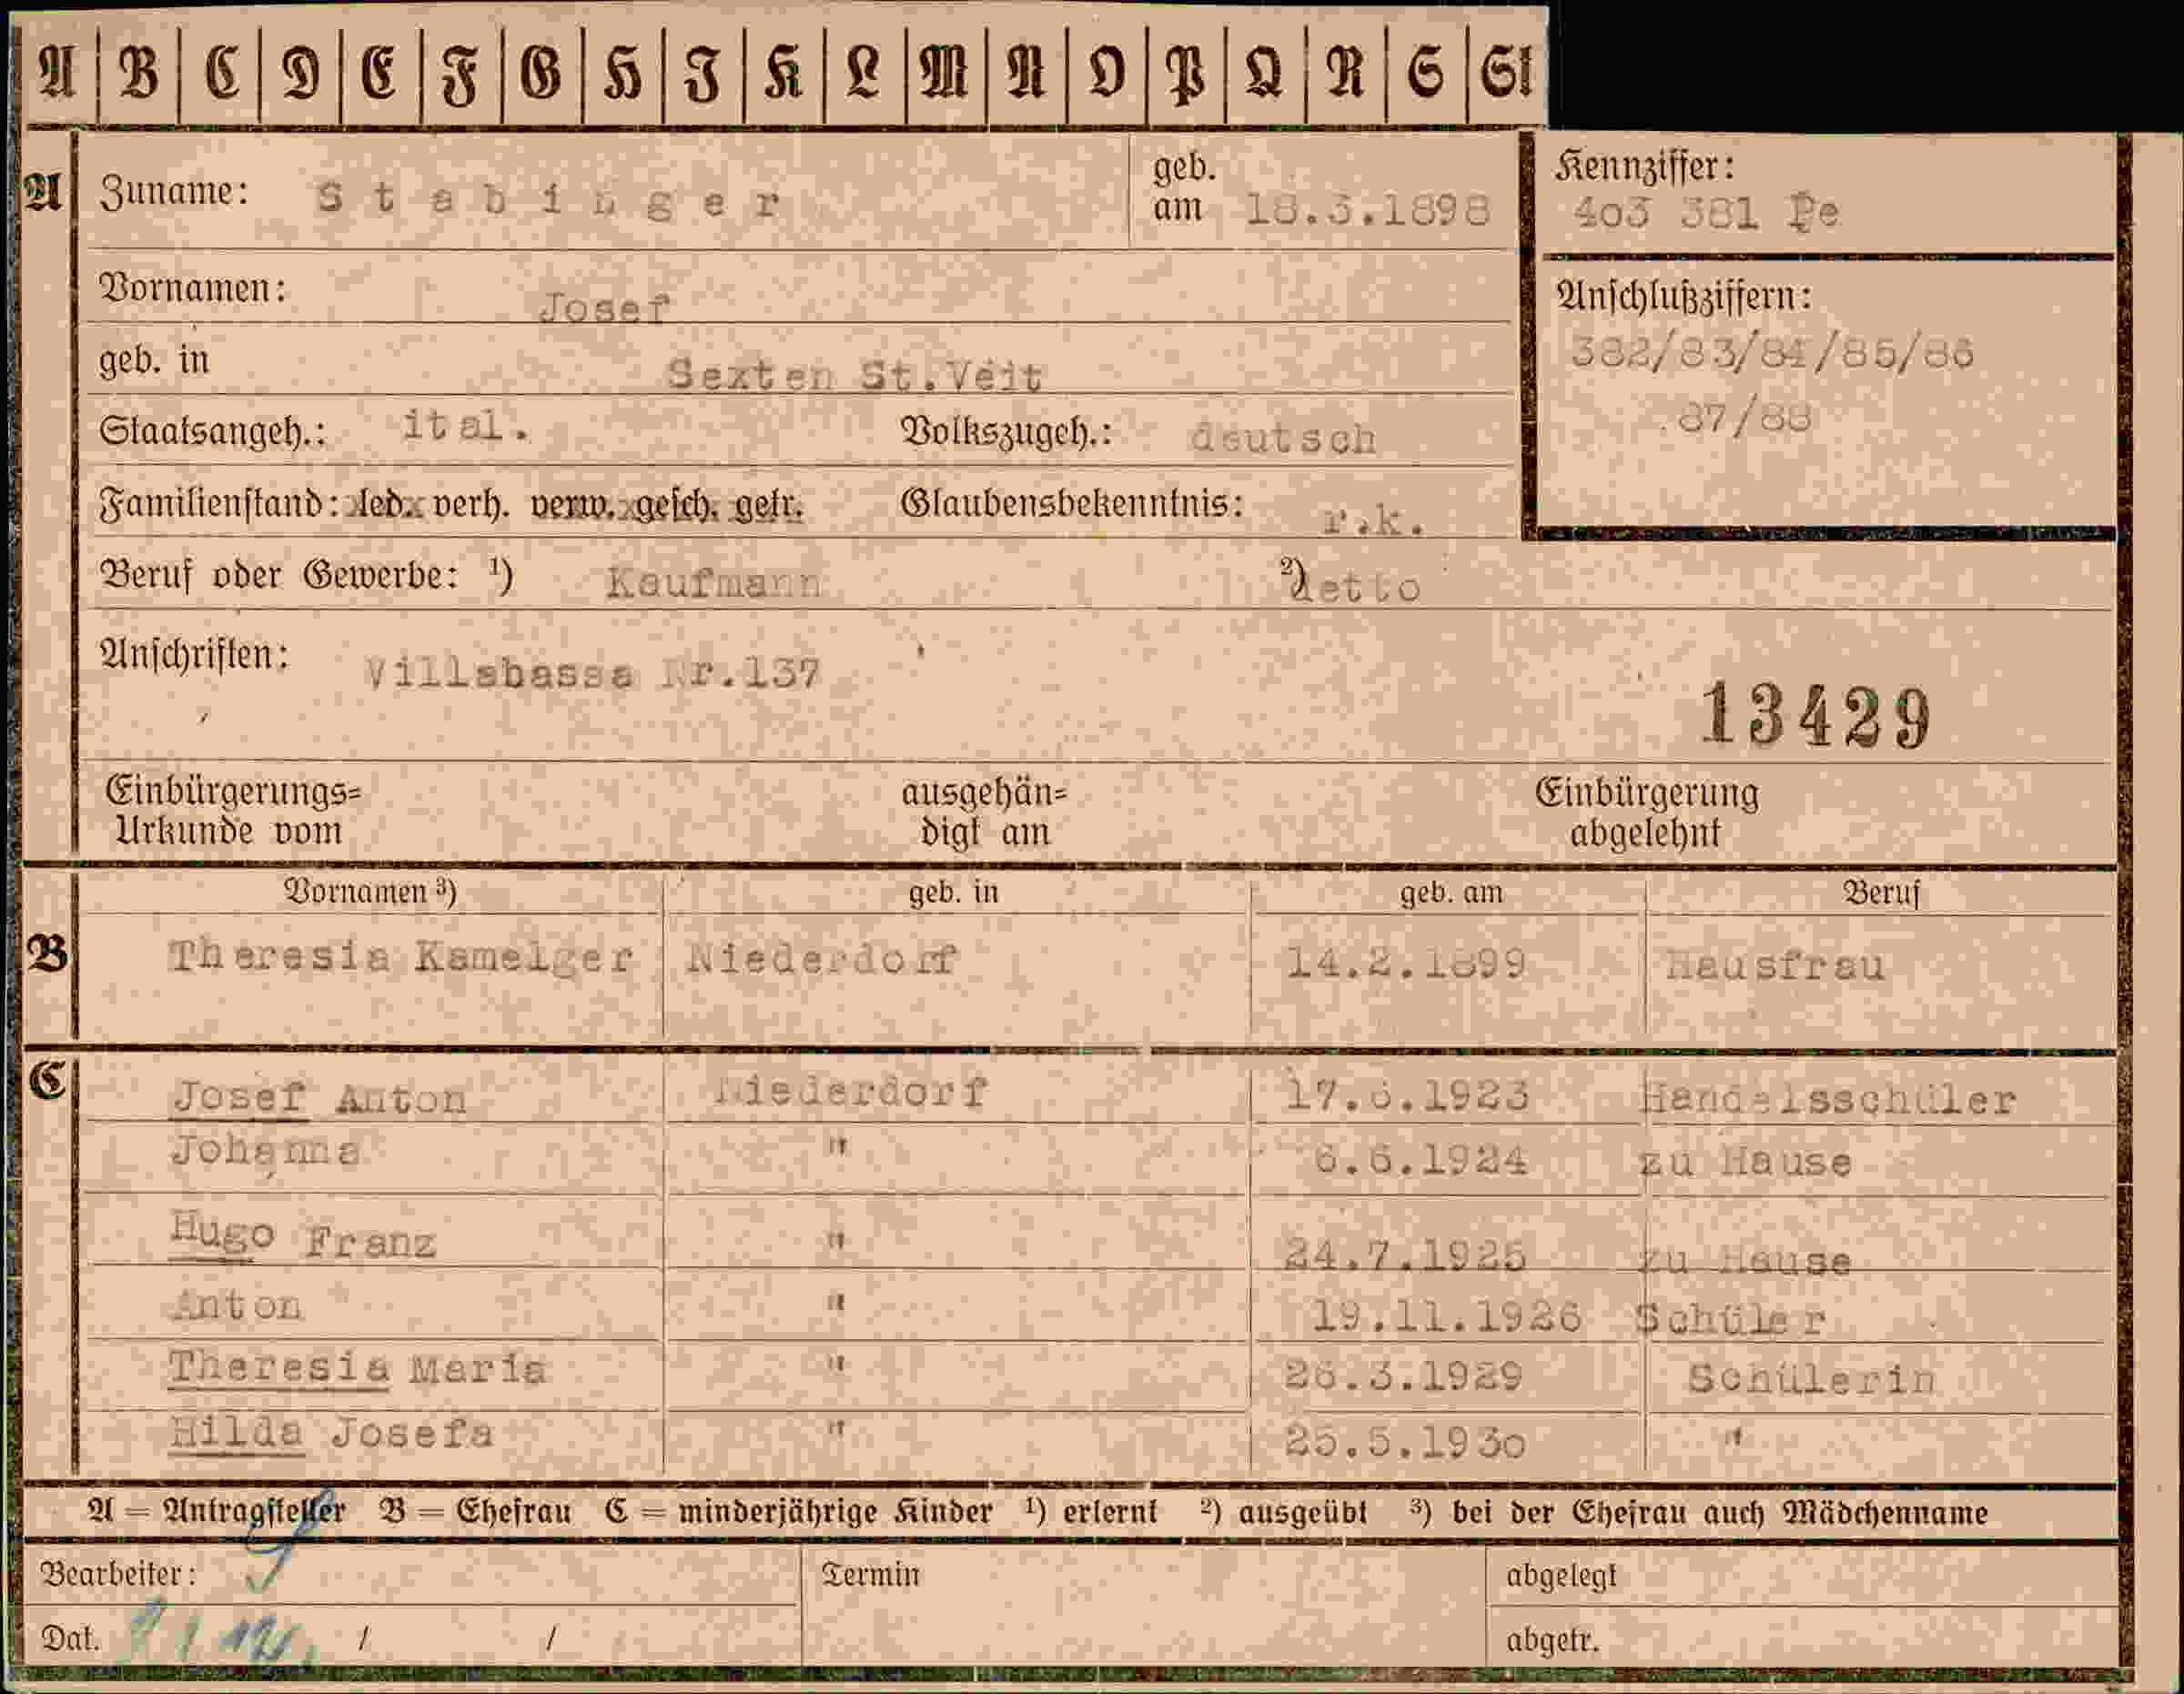 A B C D E F G H I K L M N O P Q R S St
A Zuname: Stabinger geb. am 18.3.1898 Kennziffer: 403 381 Pe
Vornamen: Josef Anschlußziffern:
geb. in Sexten St.Veit 382/83/84/85/86
Staatsangeh.: ital. Volkszugeh.: deutsch 87/88
Familienstand: led. verh. verw. gesch. getr. Glaubensbekenntnis: r.k.
Beruf oder Gewerbe: ¹) Kaufmann ²) detto
Anschriften: Villabassa Nr.137
13429
Einbürgerungs= ausgehän= Einbürgerung
Urkunde vom digt am abgelehnt
Vornamen ³) geb. in geb. am Beruf
B Theresia Kamelger Niederdorf 14.2.1899 Hausfrau
C Josef Anton Niederdorf Handelsschüler
Johanna " 6.6.1924 zu Hause
Hugo Franz " 24.7.1925 zu Hause
Anton " 19.11.1926 Schüler
Theresia Maria " 26.3.1929 Schülerin
Hilda Josefa " 25.5.1930 "
A = Antragsteller B = Ehefrau C = minderjährige Kinder ¹) erlernt ²) ausgeübt ³) bei der Ehefrau auch Mädchenname
Bearbeiter: Termin abgelegt
Dat. / / abgetr.